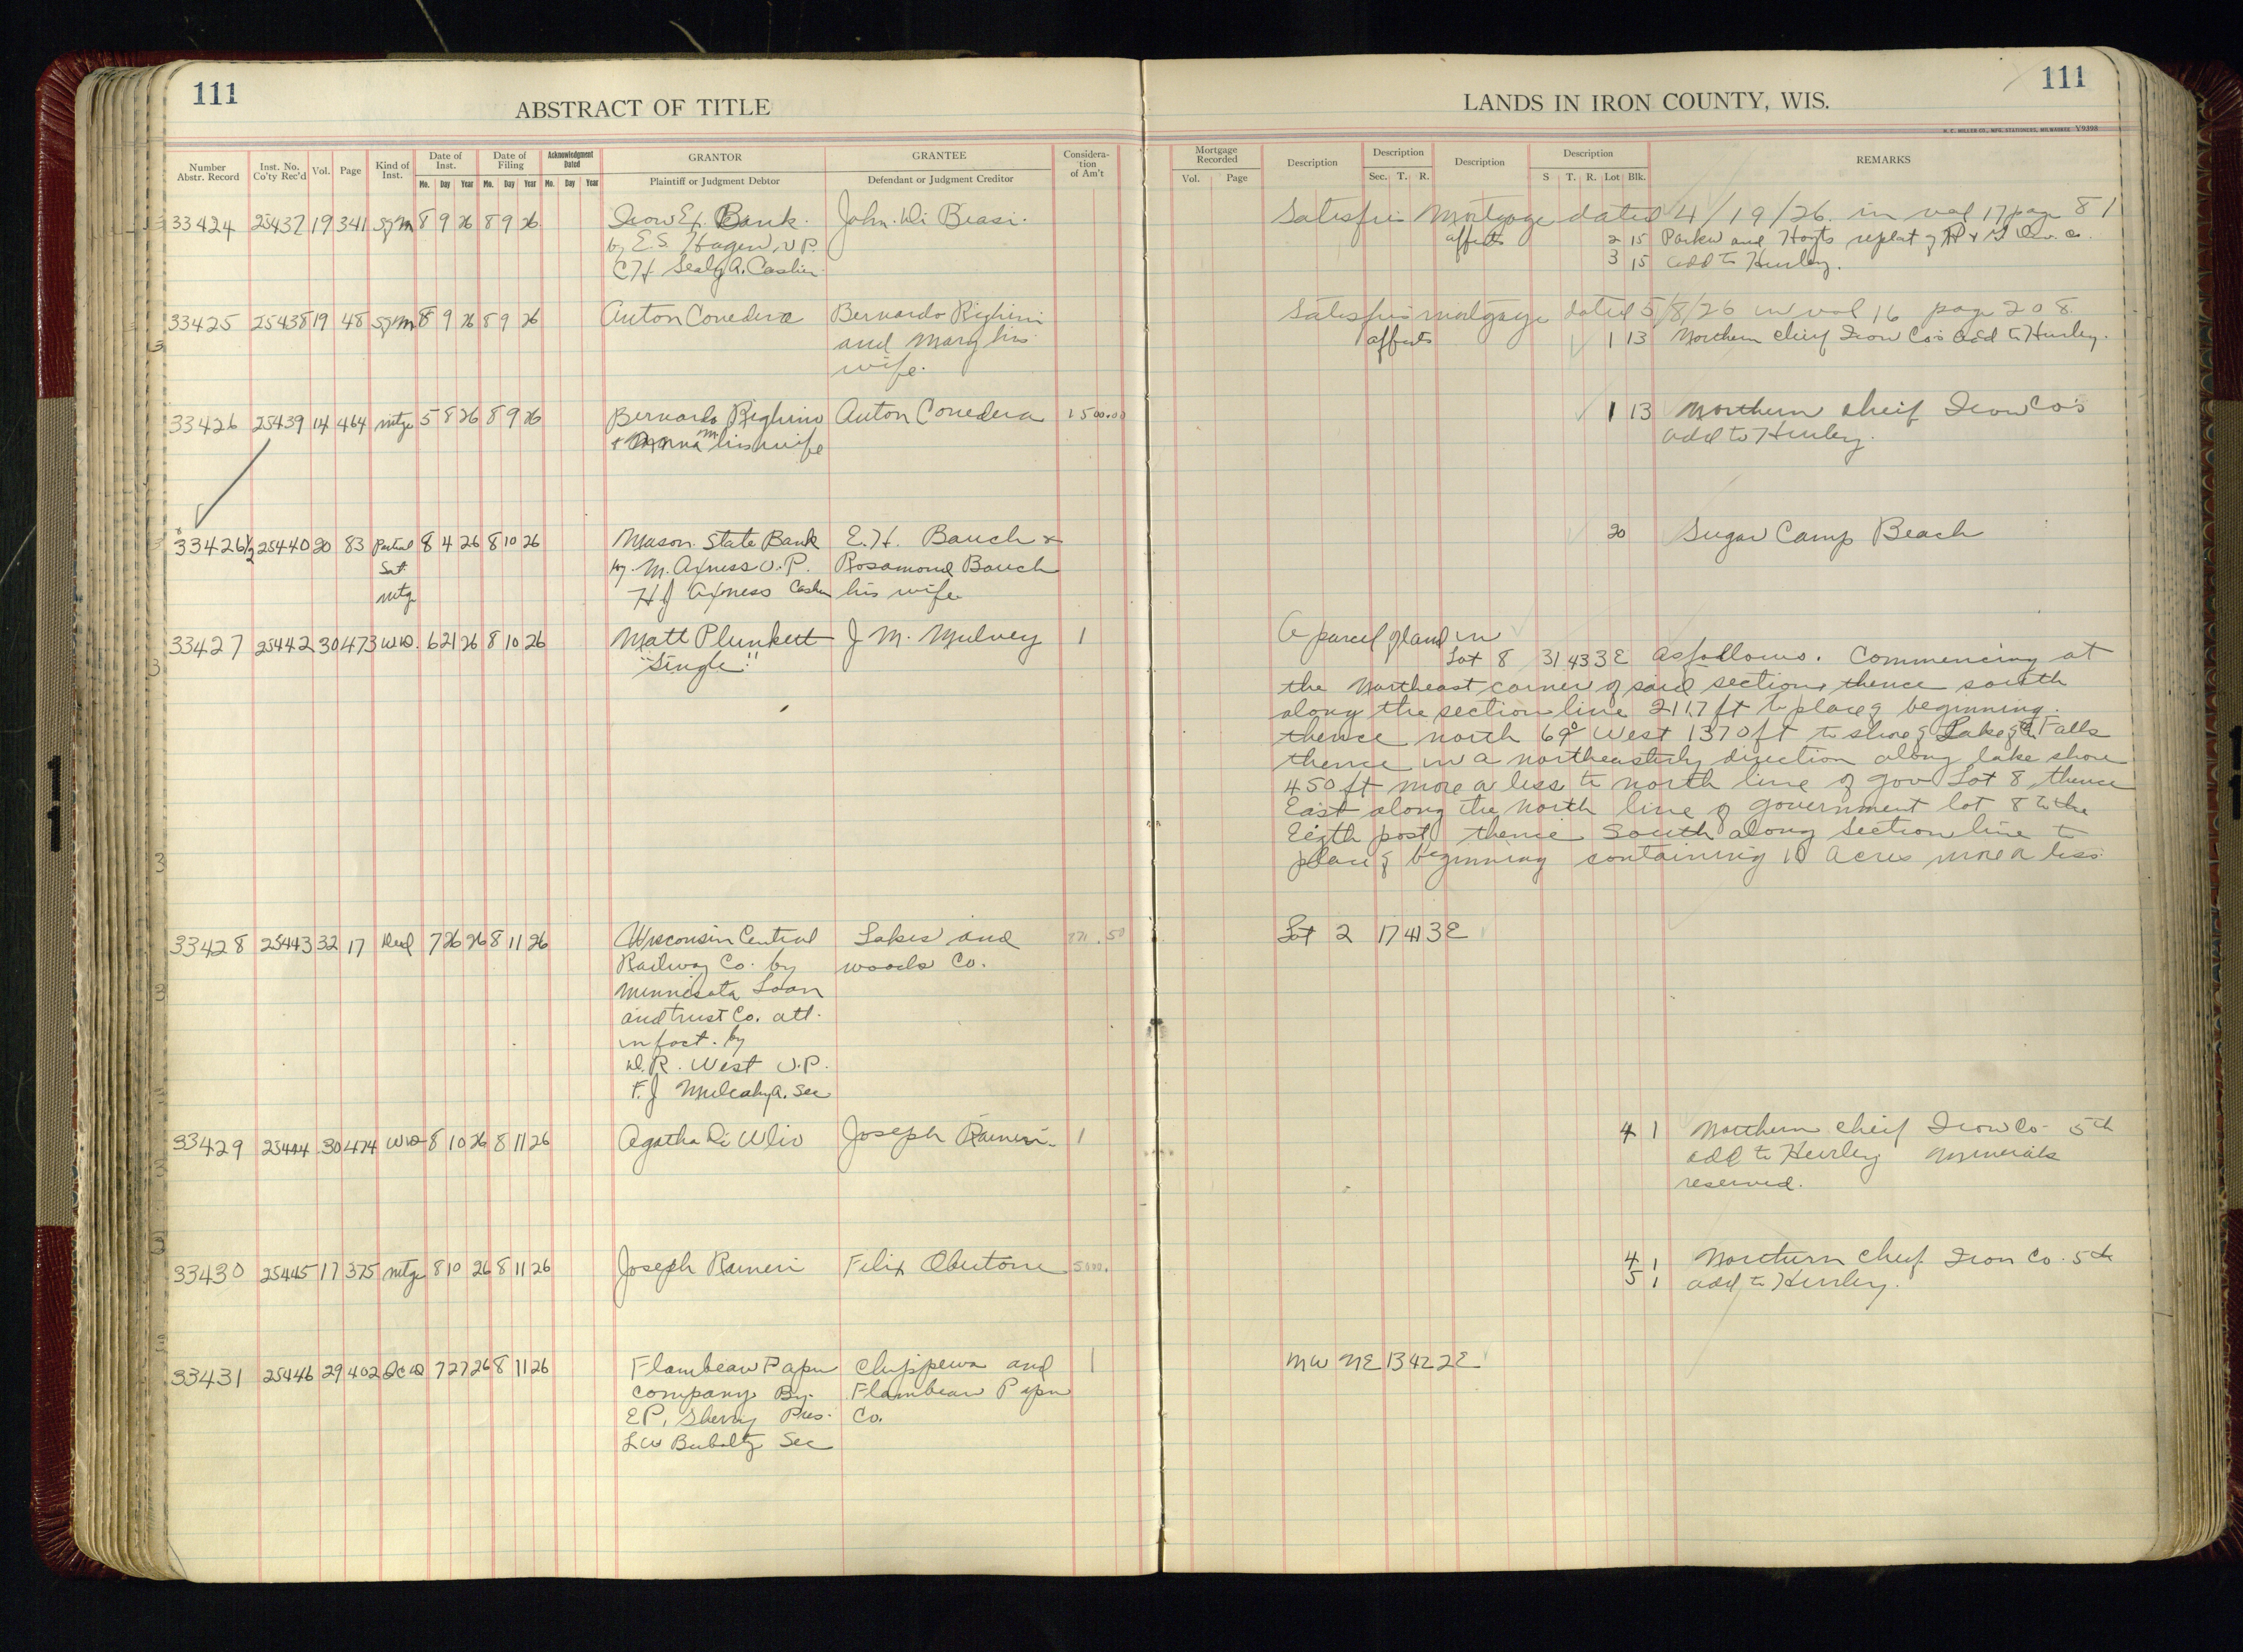 111
ABSTRACT OF TITLE
LANDS IN IRON COUNTY, WIS.
111
H. C. MILLER CO., MFG. STATIONERS, MILWAUKEE Y9398
Number Abstr. Record Inst. No. Co'ty Rec'd Vol. Page Kind of Inst. Date of Inst. Date of Filing Acknowledgment Dated GRANTOR GRANTEE Considera-tion of Am't Mortgage Recorded Description Description Description Description REMARKS
Mo. Day Year Mo. Day Year Mo. Day Year Plaintiff or Judgment Debtor Defendant or Judgment Creditor Vol. Page Sec. T. R. S T. R. Lot Blk.
33424 25437 19 341 8 9 26 8 9 26 Iron Ex. Bank. John Di Biasi. Satisfies Mortgage dated 4/19/26. in vol 17 page 81
by E.S. Hagen, V.P. affects 2 15 Parker and Hoyts replat of
C.H. Sealy A. Cashier 3 15 add to Hurley.
33425 25438 19 48 8 9 26 8 9 26 Anton Conedera Bernardo Righini Satisfies mortgage dated 5/8/26 in vol 16 page 208.
and Mary his affects 1 13 Northern Chief Iron Co's add to Hurley.
wife.
33426 25439 14 464 mtge 5 8 26 8 9 26 Bernardo Righini Anton Conedera 1500.00 1 13 Northern cheif Iron Co's
his wife add to Hurley.
33426½ 25440 20 83 Partial 8 4 26 8 10 26 Mason State Bank E.H. Bauch & 20 Sugar Camp Beach
Sat. by M. Axness V.P. Rosamond Bauch
mtge H J Axness Cashier his wife
33427 25442 30 473 W.D. 6 21 26 8 10 26 Matt Plunkett J M. Mulvey 1 A parcel of land in
"Single" Lot 8 31 43 3E as follows. Commencing at
the Northeast corner of said section, thence south
along the section line 2117 ft to place of beginning.
thence north 69° West 1370 ft to shore of Lake of the Falls
thence in a northeasterly direction along lake shore
450 ft more or less to north line of gov Lot 8 thence
East along the north line of government lot 8 to the
post thence South along section line to
place of beginning containing 10 acres more or less
33428 25443 32 17 Deed 7 26 26 8 11 26 Wisconsin Central Lakes and .50 Lot 2 17 41 3E
Railway Co. by woods Co.
Minnesota Loan
and trust Co. att.
in fact. by
D.R. West V.P.
F.J Mulcahy A. Sec
33429 25444 30 474 WD 8 10 26 8 11 26 Agatha Joseph Raineri 1 4 1 Northern Cheif Iron Co. 5th
add to Hurley Minerals
reserved.
33430 25445 17 375 mtge 8 10 26 8 11 26 Joseph Raineri Felix 5000. 4 1 Northern Chief Iron Co. 5th
5 1 add to Hurley.
33431 25446 29 402 QCD 7 27 26 8 11 26 Flambeau Paper Chippewa and 1 NW NE 13 42 2E
company By Flambeau Paper
E.P. Sherry Pres. Co.
L W Buboltz Sec